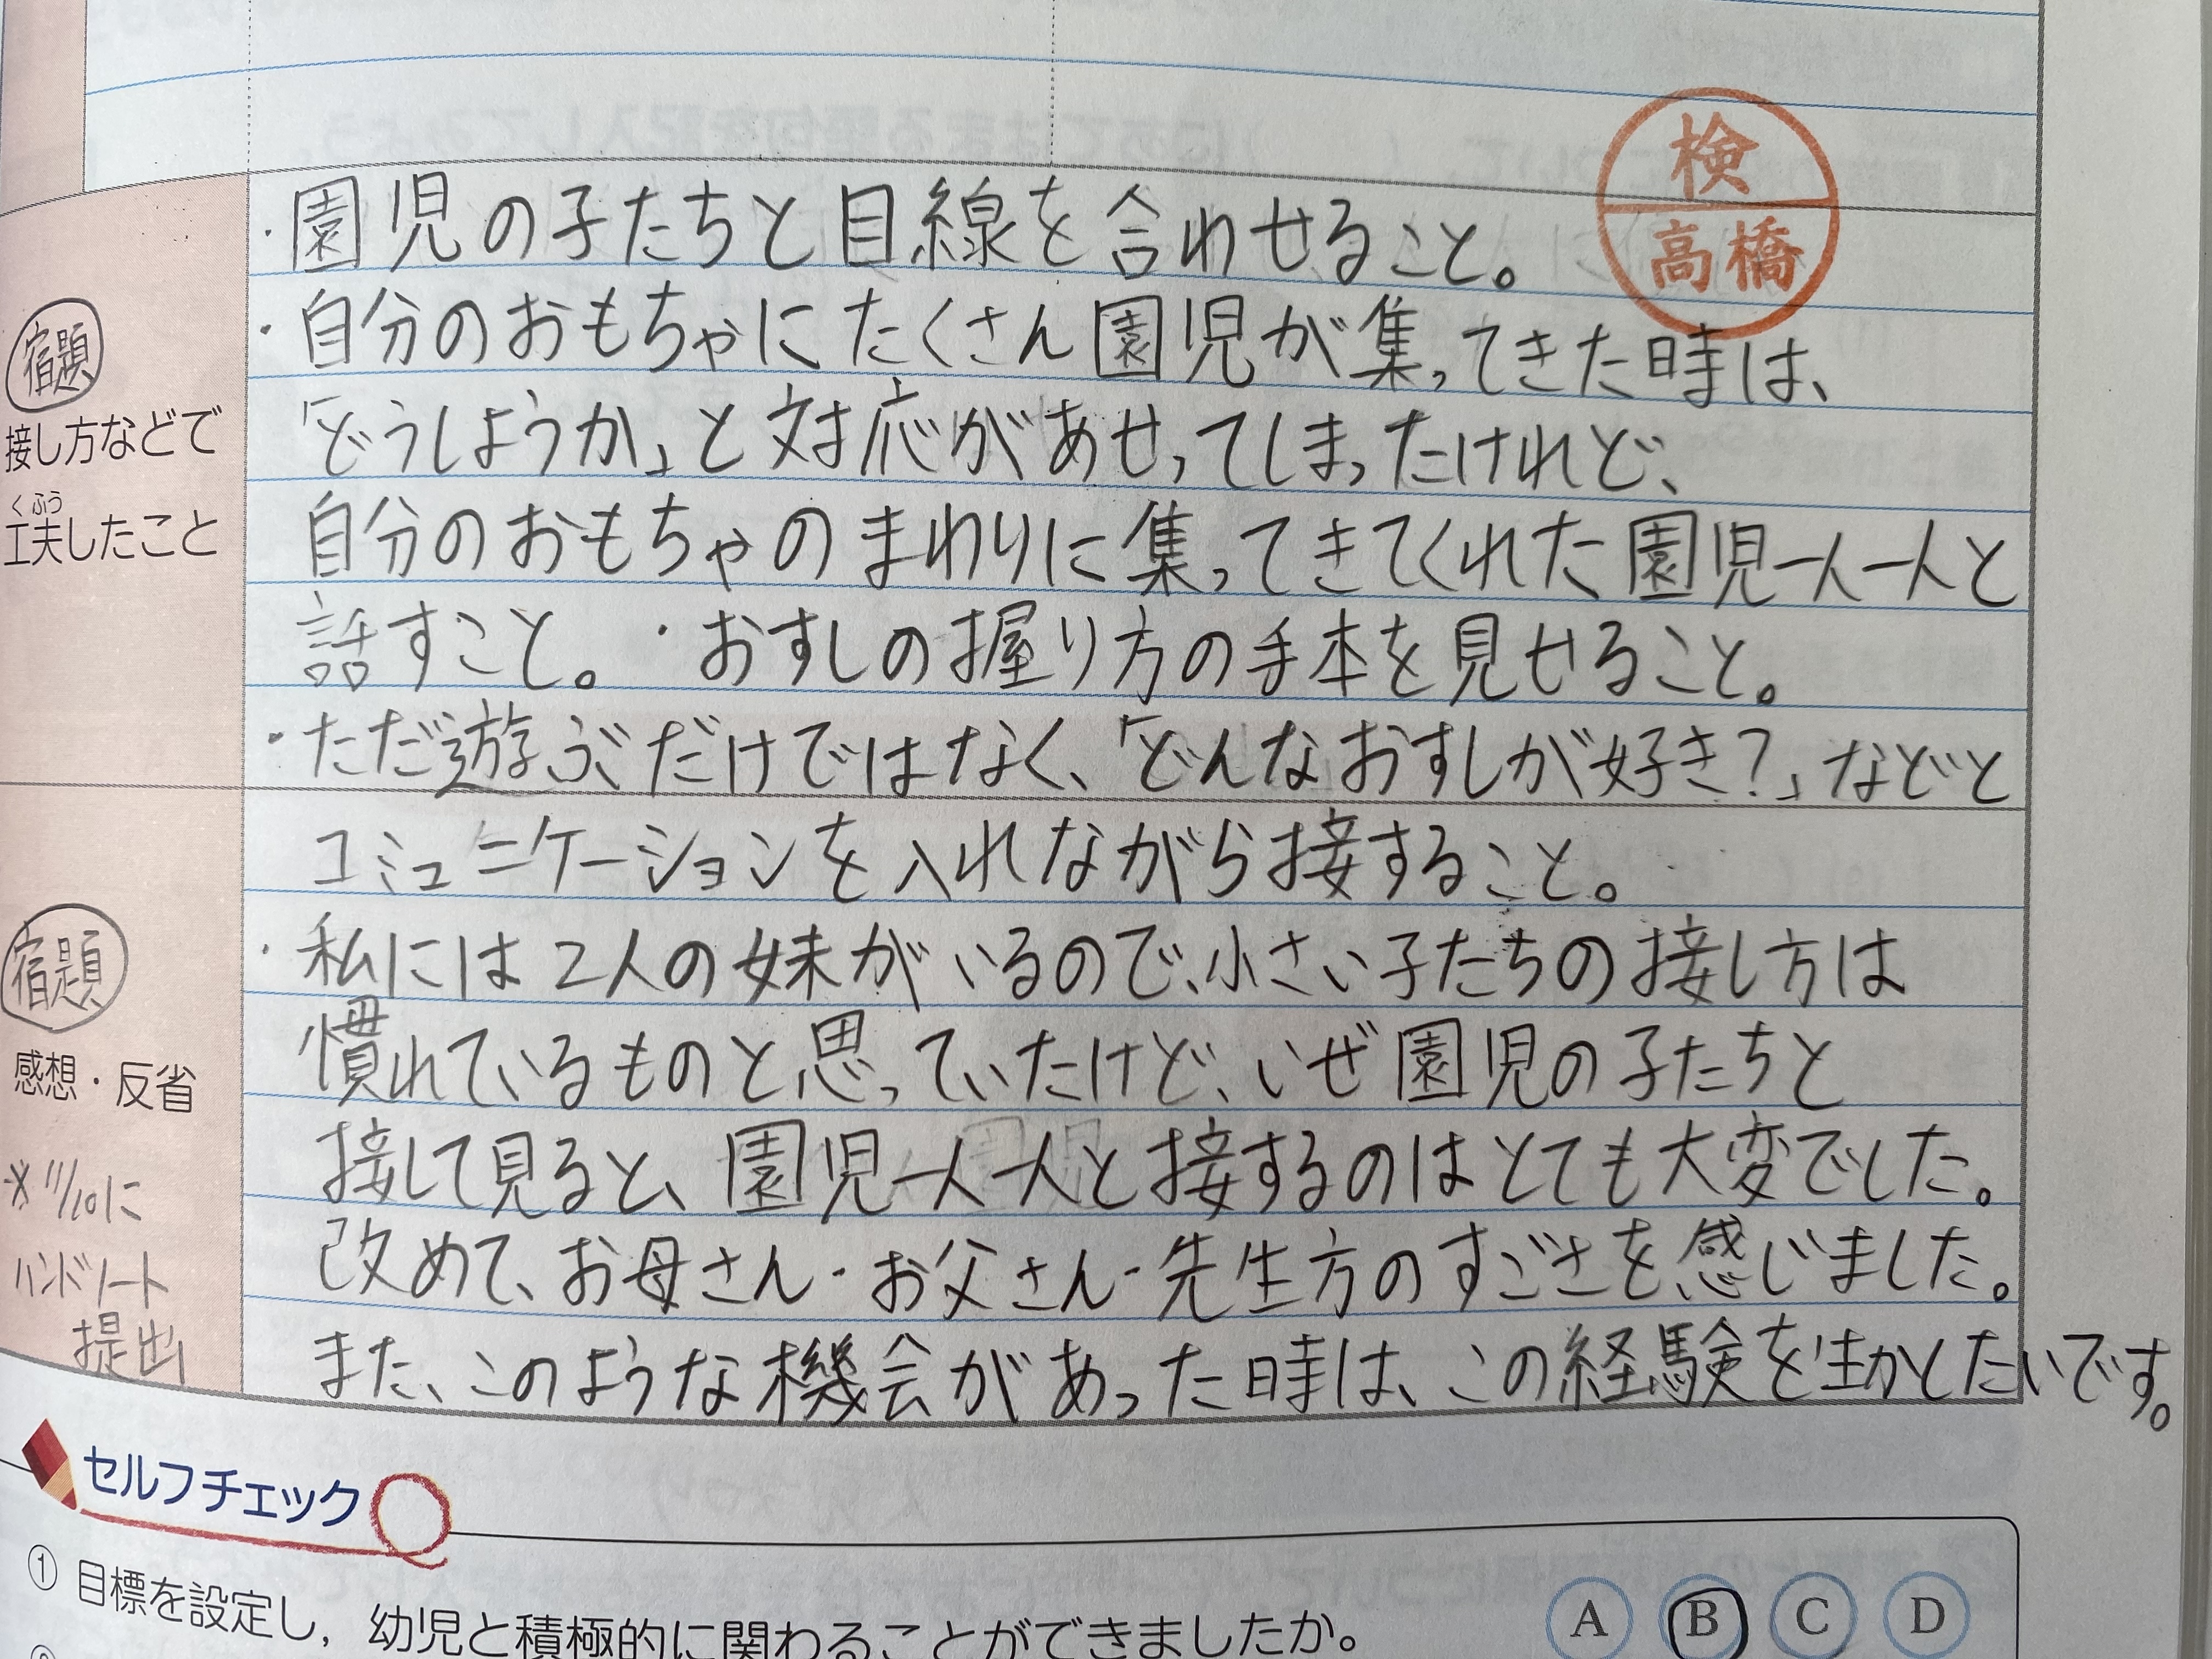 検
高橋
宿題
接し方などで
くふう
工夫したこと
・園児の子たちと目線を合わせること。
・自分のおもちゃにたくさん園児が集ってきた時は、
「どうしようか」と対応があせってしまったけれど、
自分のおもちゃのまわりに集ってきてくれた園児一人一人と
話すこと。・おすしの握り方の手本を見せること。
・ただ遊ぶだけではなく、「どんなおすしが好き?」などと
コミュニケーションを入れながら接すること。
宿題
感想・反省
※11/10に
ハンドノート
提出
・私には2人の妹がいるので、小さい子たちの接し方は
慣れているものと思っていたけど、いぜ園児の子たちと
接して見ると、園児一人一人と接するのはとても大変でした。
改めて、お母さん・お父さん・先生方のすごさを感じました。
また、このような機会があった時は、この経験を生かしたいです。
セルフチェック
① 目標を設定し,幼児と積極的に関わることができましたか。
A B C D